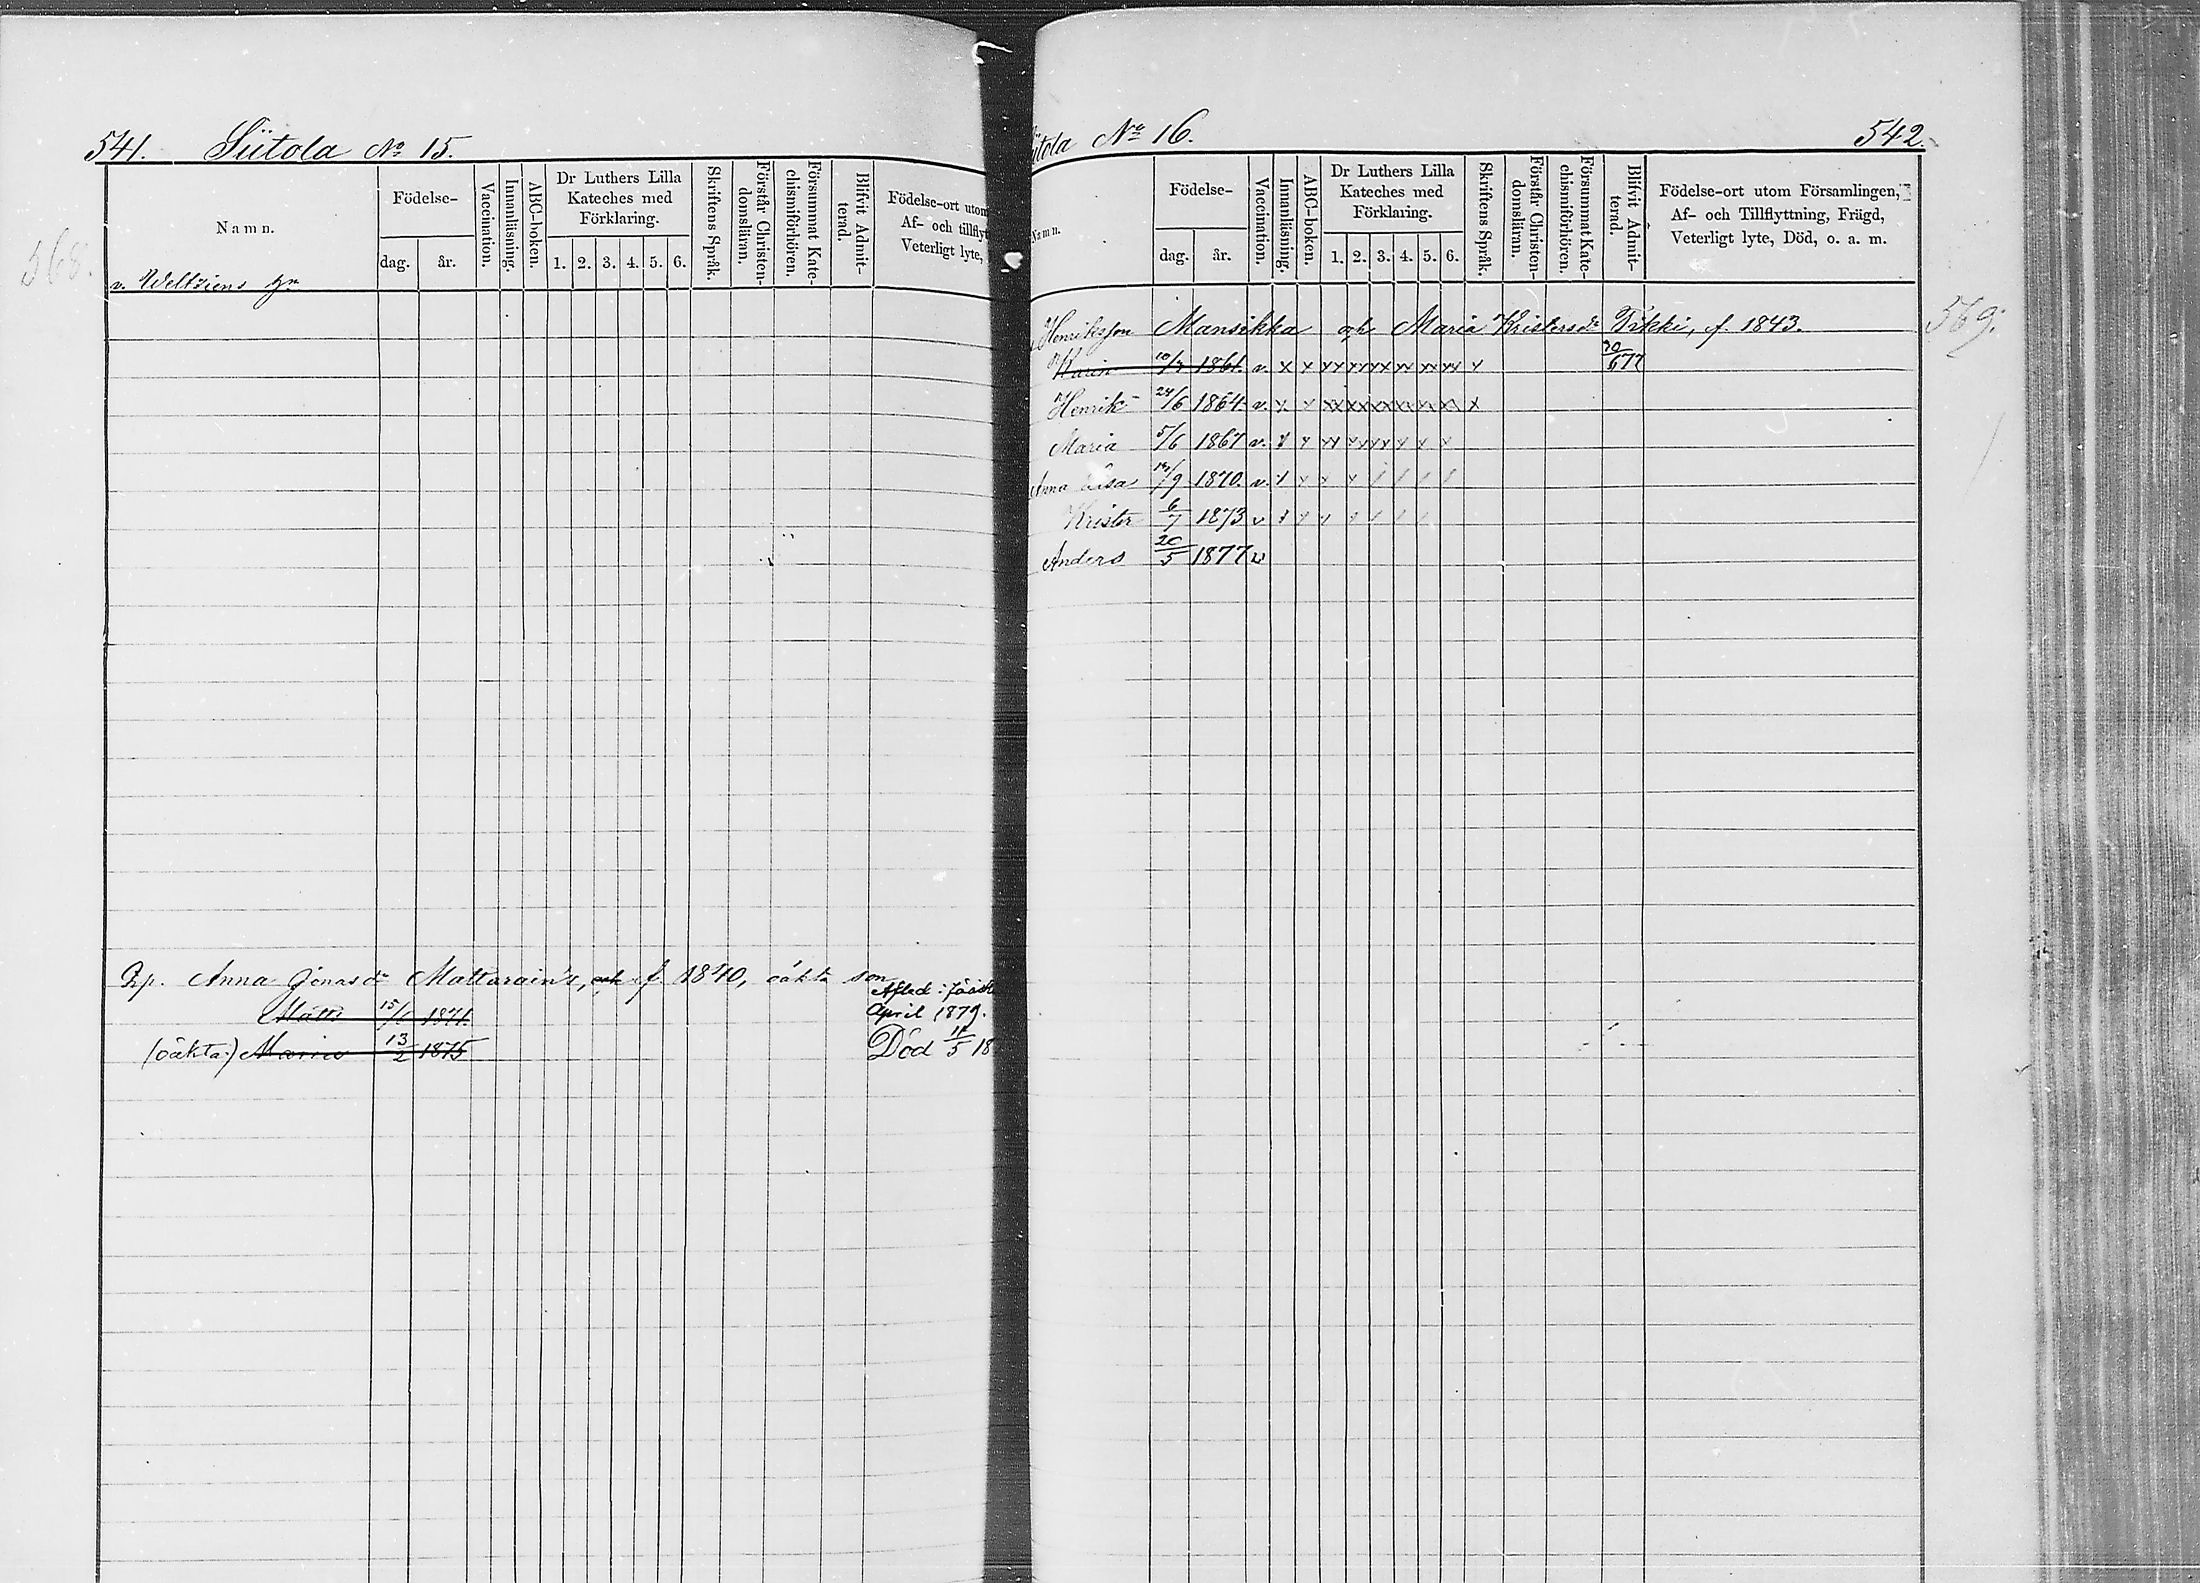 541. Siitola No 15.
Namn.
Födelse-
dag. år.
Vaccination.
Innanläsning.
ABC-boken.
Dr Luthers Lilla
Kateches med
Förklaring.
1. 2. 3. 4. 5. 6.
Skriftens Språk.
Förstår Christen-
domsläran.
Försummat Kate-
chismiförhören.
Blifvit Admit-
terad.
Födelse-ort utom
Af- och tillflyt
Veterligt lyte,
568.
v. Weltziens
Anna Jonasdr f. 1840, oäkta son
Matts 15/ 1871.
Afled i
April 1879.
(oäkta) Maria 13/2 1875
Död 11/5 18
itola No 16. 542.
Namn.
Födelse-
dag. år.
Vaccination.
Innanläsning.
ABC-boken.
Dr Luthers Lilla
Kateches med
Förklaring.
1. 2. 3. 4. 5. 6.
Skriftens Språk.
Förstår Christen-
domsläran.
Försummat Kate-
chismiförhören.
Blifvit Admit-
terad.
Födelse-ort utom Församlingen,
Af- och Tillflyttning, Frägd,
Veterligt lyte, Död, o. a. m.
569.
Henriksson Mansikka o h Maria Kristersdr Tikki, f. 1843.
Karin 10/7 1861. v. x x xx xx xx xx xx xx x 30/6 77
Henrik 24/6 1864. v. x x xx xx xx xx xx xx x
Maria 5/6 1867 v. x x xx xx xx x x x
Anna Lisa /9 1870. v. x x x x / / / /
Krister 6/7 1873 v x x x x / / /
Anders 20/5 1877 v